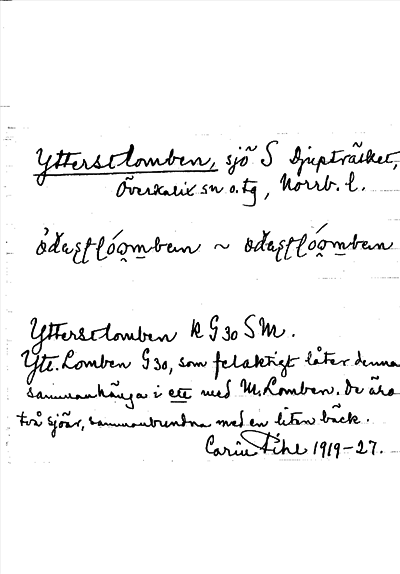 Ytterstlomben, sjö S Djupträsket,
Överkalix sn o. tg, Norrb. l.
Ytterstlomben k G30 SM.
Ytt. Lomben G30, som felaktigt låter denna
sammanhänga i ett med M. Lomben. De äro
två sjöar, sammanbundna med en liten bäck.
Carin Pihl 1919-27.